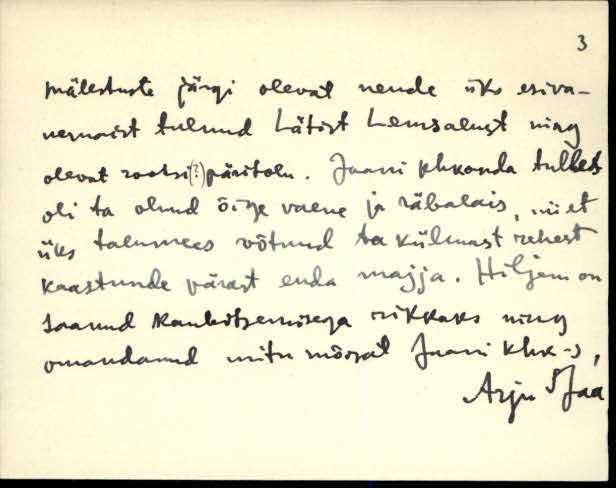 3
mälestuste järgi olevat nende üks esiva-
nemaist tulnud Lätist Lemsalust ning
olevat rootsi(?) päritolu. Jaani khkonda tulles
oli ta olnud õige vaene ja räbalais, nii et
üks talumees võtnud ta külmast rehest
kaastunde pärast enda majja. Hiljem on
saanud kaubitsemisega rikkaks ning
omandanud mitu mõisat Jaani khk-s,
Arju Jaa